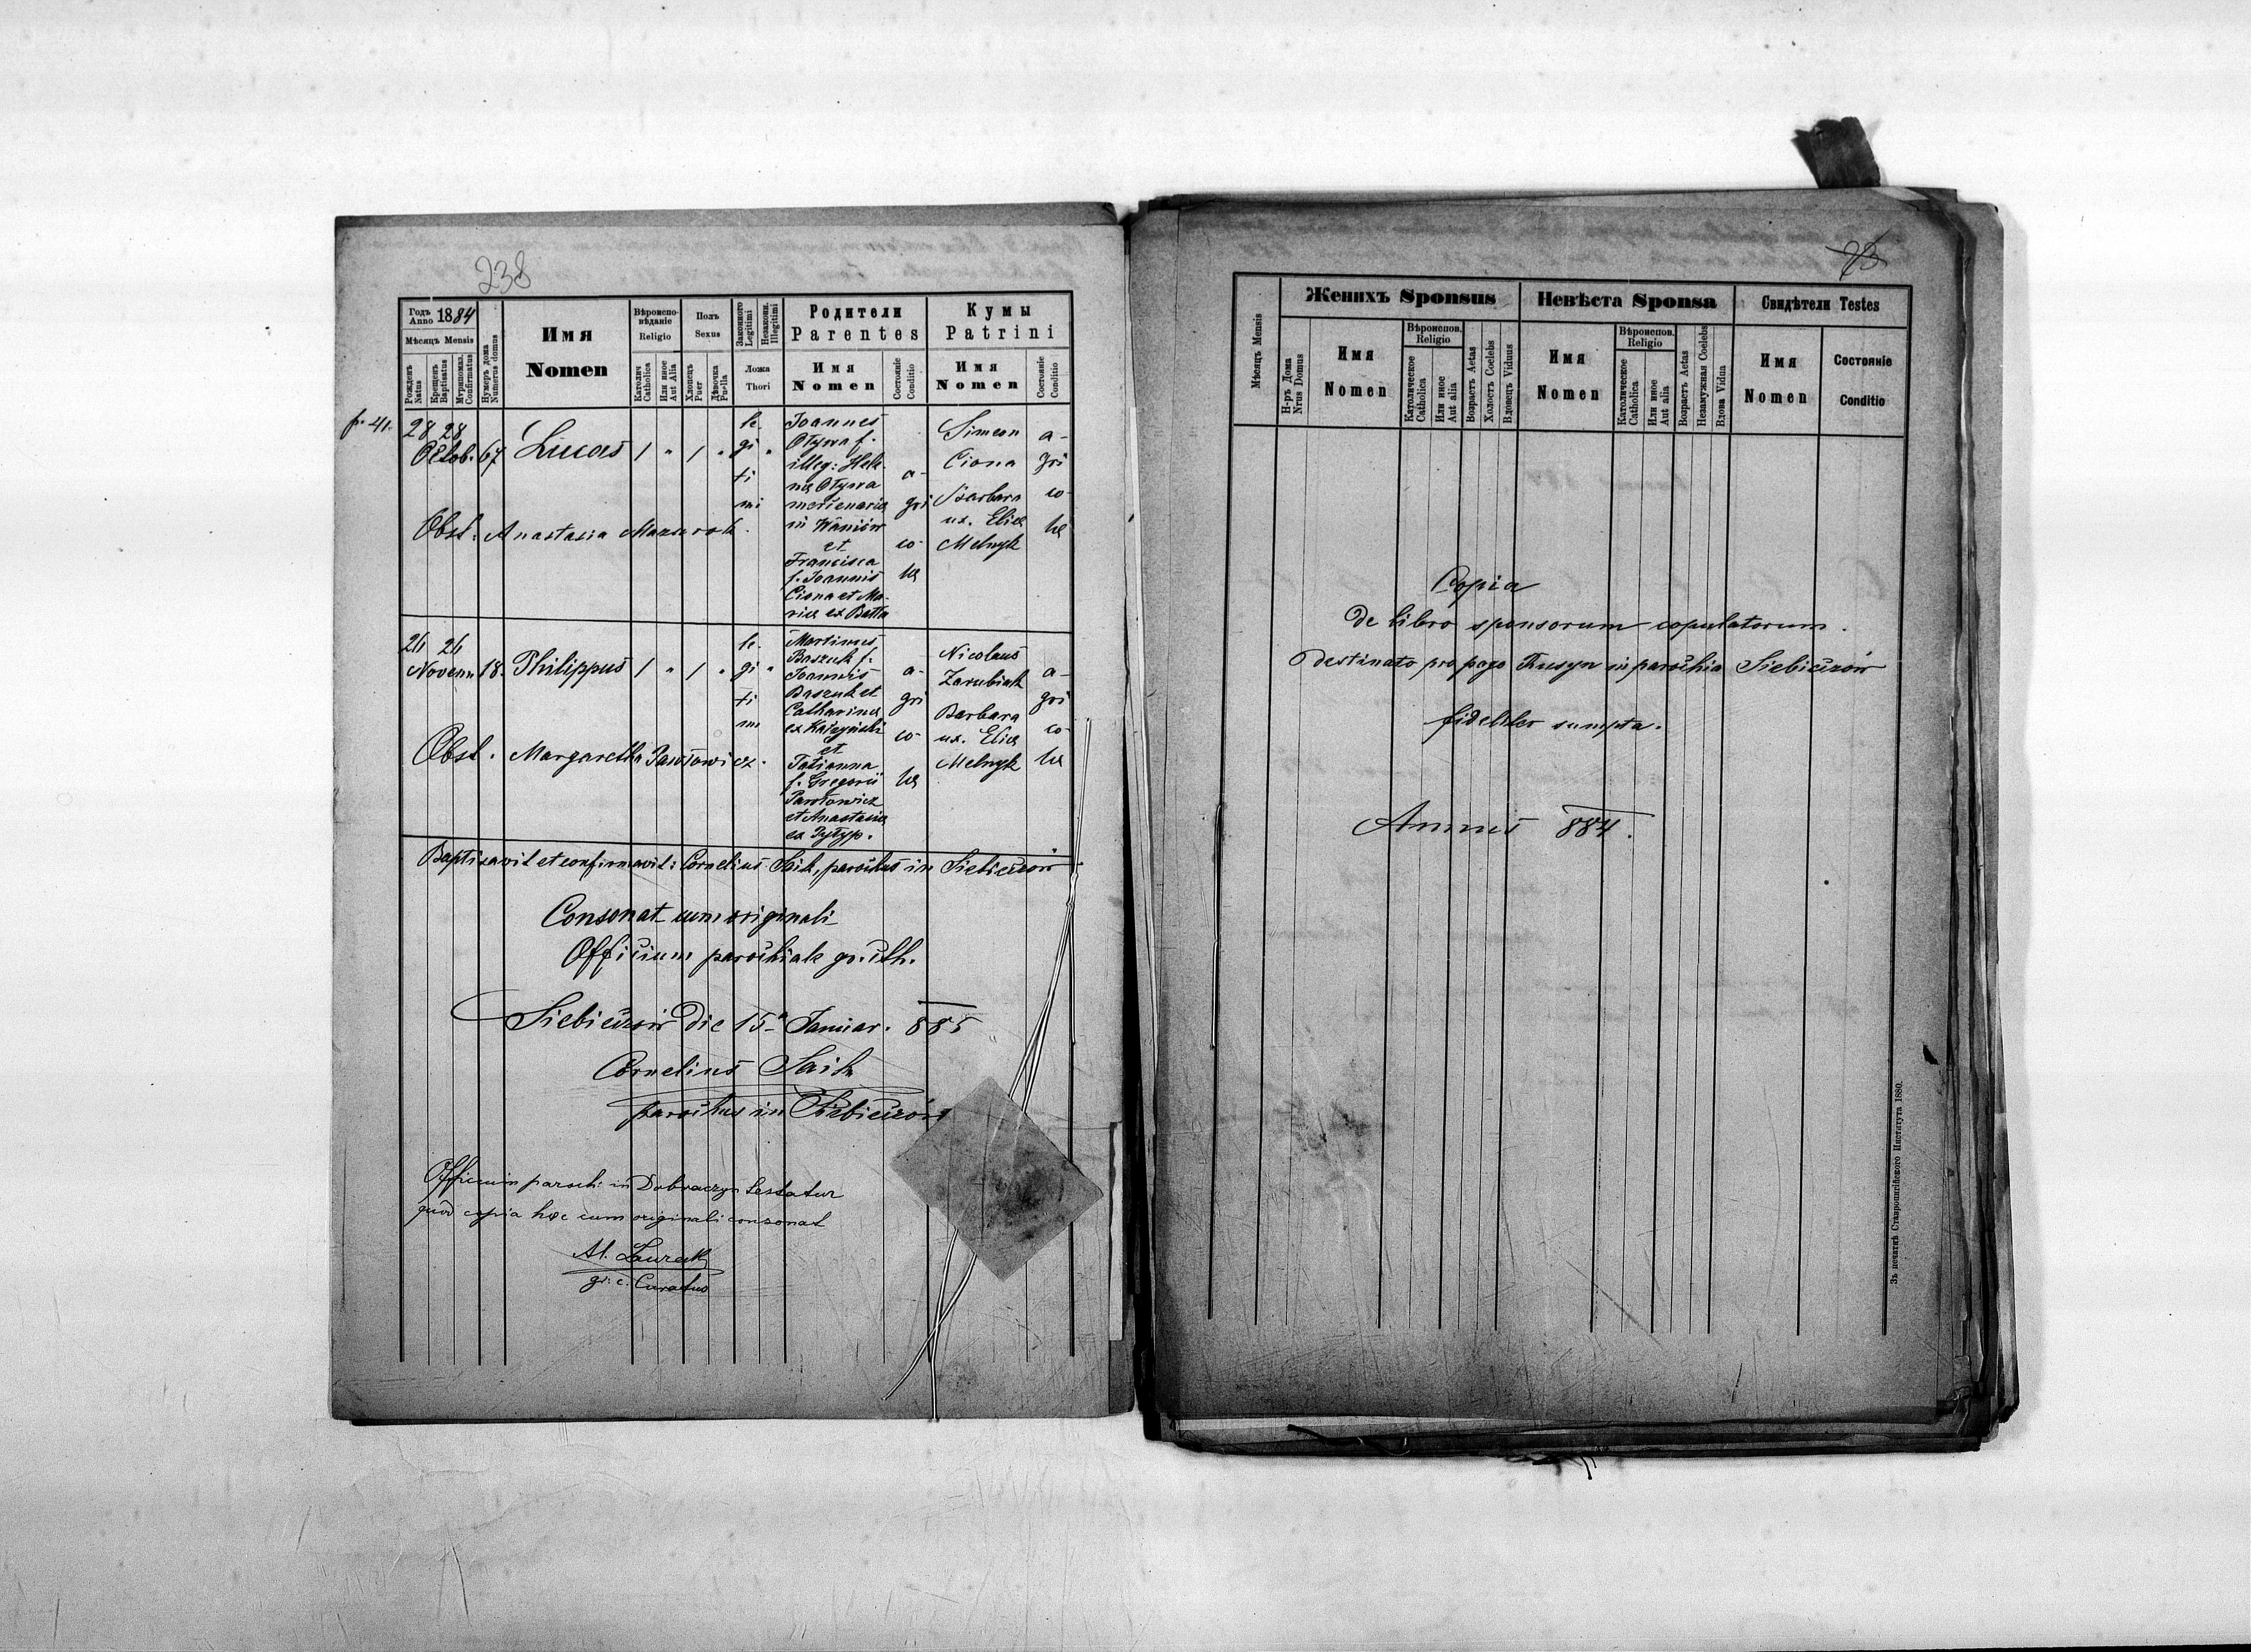 238
Годъ Anno 1884
Мѣсяцъ Mensis
Рожденъ Natus
Крещенъ Baptisatus
Мѵропомаз. Confirmatus
Нумеръ дома Numerus domus
Имя
Nomen
Вѣроиспо-
вѣданіе
Religio
Католич Catholica
Или иное Aut Alia
Полъ
Sexus
Хлопецъ Puer
Дѣвочка Puella
Законного Legitimi
Незаконн. Illegitimi
Ложа
Thori
Родители
Parentes
Имя
Nomen
Состояніе
Conditio
Кумы
Patrini
Имя
Nomen
Состояніе
Conditio
28 28
Octob. 67 Lucas 1 " 1 "
le-
gi "
ti
mi
Joannes
Otywa f.
illeg: Hele-
næ Otywa
mercenariæ
in Waniów
et
Francisca
f. Joannis
Ciona et Ma-
riæ ex Batta
a-
gri
co-
læ
Simeon
Ciona
Barbara
ux. Eliæ
Melnyk
a-
gri
co-
læ
Obst: Anastasia Mazurok.
26 26
Novem 18. Philippus 1 " 1 "
le-
gi "
ti
mi
Martinus
Baszuk f.
Joannis
Baszuk et
Catharinæ
ex Kaczyński
et
Tatianna
f. Gregorii
Pawłowicz
et Anastasiæ
ex Pytyp.
a-
gri
co-
læ
Nicolaus
Zarubiak
Barbara
ux. Eliæ
Melnyk
a-
gri
co-
læ
Obst. Margaretha Pawłowicz.
Baptisavit et confirmavit: Cornelius Saik, parochus in Siebieczów
Consonat cum originali
Officium parochiale gr. cth.
Siebieczów die 15a Januar. 885
Cornelius Saik
parochus in Siebieczów
Officium paroch: in Dobraczyn testatur
quod copia hæc cum originali consonat
gr: c. Curatus
73
Мѣсяцъ Mensis
Женихъ Sponsus
Н-ръ Дома
Nrus Domus
Имя
Nomen
Вѣроиспов.
Religio
Католическое
Catholica
Или иное
Aut alia
Возрастъ Aetas
Холостъ Coelebs
Вдовецъ Viduus
Невѣста Sponsa
Имя
Nomen
Вѣроиспов.
Religio
Католическое
Catholica
Или иное
Aut alia
Возрастъ Aetas
Незамужная Coelebs
Вдова Vidua
Свидѣтели Testes
Имя
Nomen
Состояніе
Conditio
Copia
de libro sponsorum copulatorum
destinato pro pago Rusyn in parochia Siebieczów
fideliter sumpta.
Annus 884.
Зъ печатнѣ Ставропигійского Института 1880.